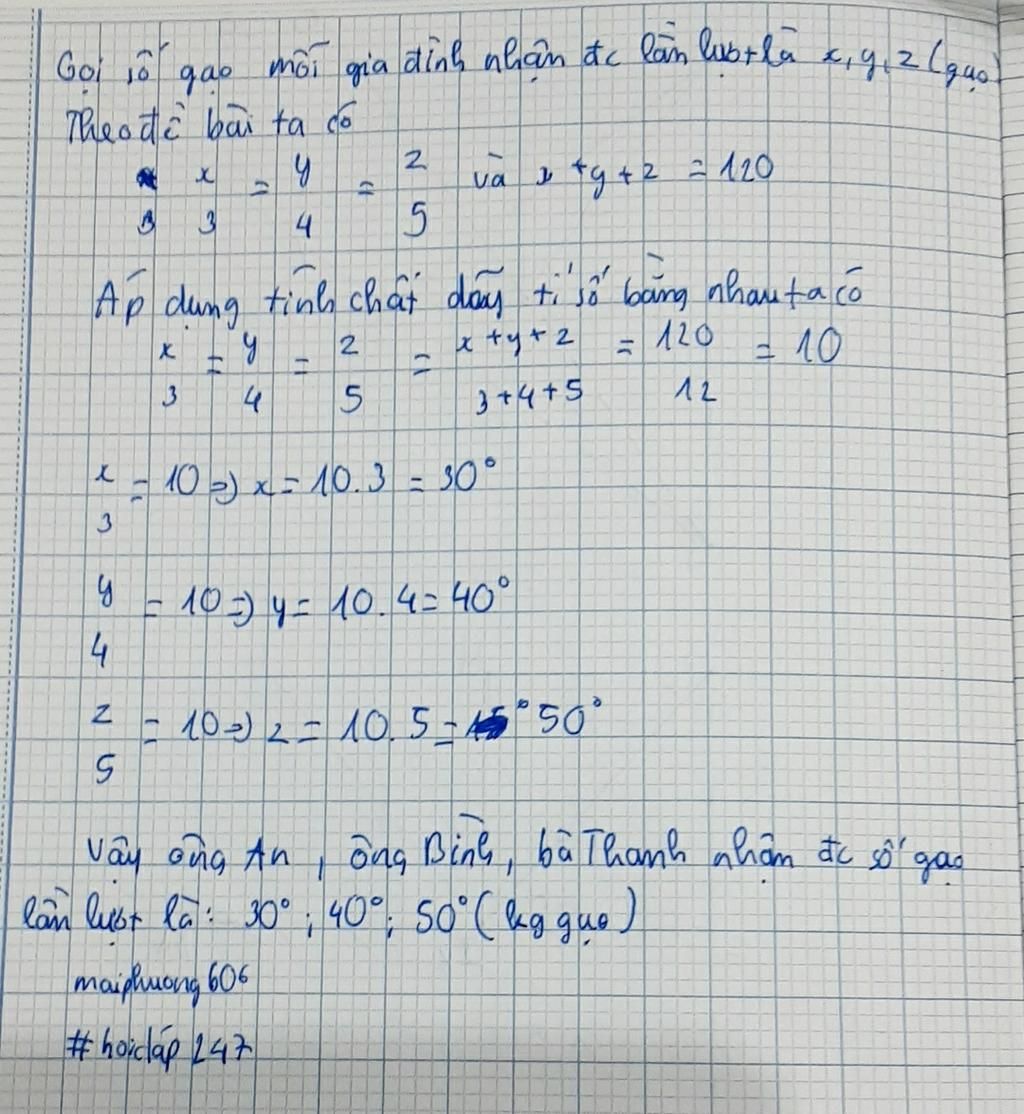 Gọi số gạo mỗi gia đình nhận đc lần lượt là x, y, z (gạo)
Theo đề bài ta có
x = y = z và x + y + z = 120
3 3 4 5
Áp dụng tính chất dãy tỉ số bằng nhau ta có
x = y = z = x + y + z = 120 = 10
3 4 5 3+4+5 12
x = 10 => x = 10.3 = 30°
3
y = 10 => y = 10.4 = 40°
4
z = 10 => z = 10.5 = ° 50°
5
Vậy ông An, ông Bình, bà Thanh nhận đc số gạo
lần lượt là: 30°; 40°; 50° (kg gạo)
maiphuong606
#hoidáp 247